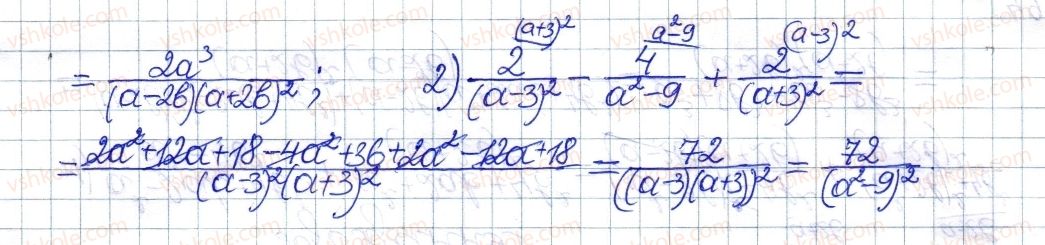 = 2a³/((a-2b)(a+2b)²); 2) 2/(a-3)² ^(a+3)² - 4/(a²-9) ^a²-9 + 2/(a+3)² ^(a-3)² =
= (2a²+12a+18-4a²+36+2a²-12a+18)/((a-3)²(a+3)²) = 72/((a-3)(a+3))² = 72/(a²-9)²